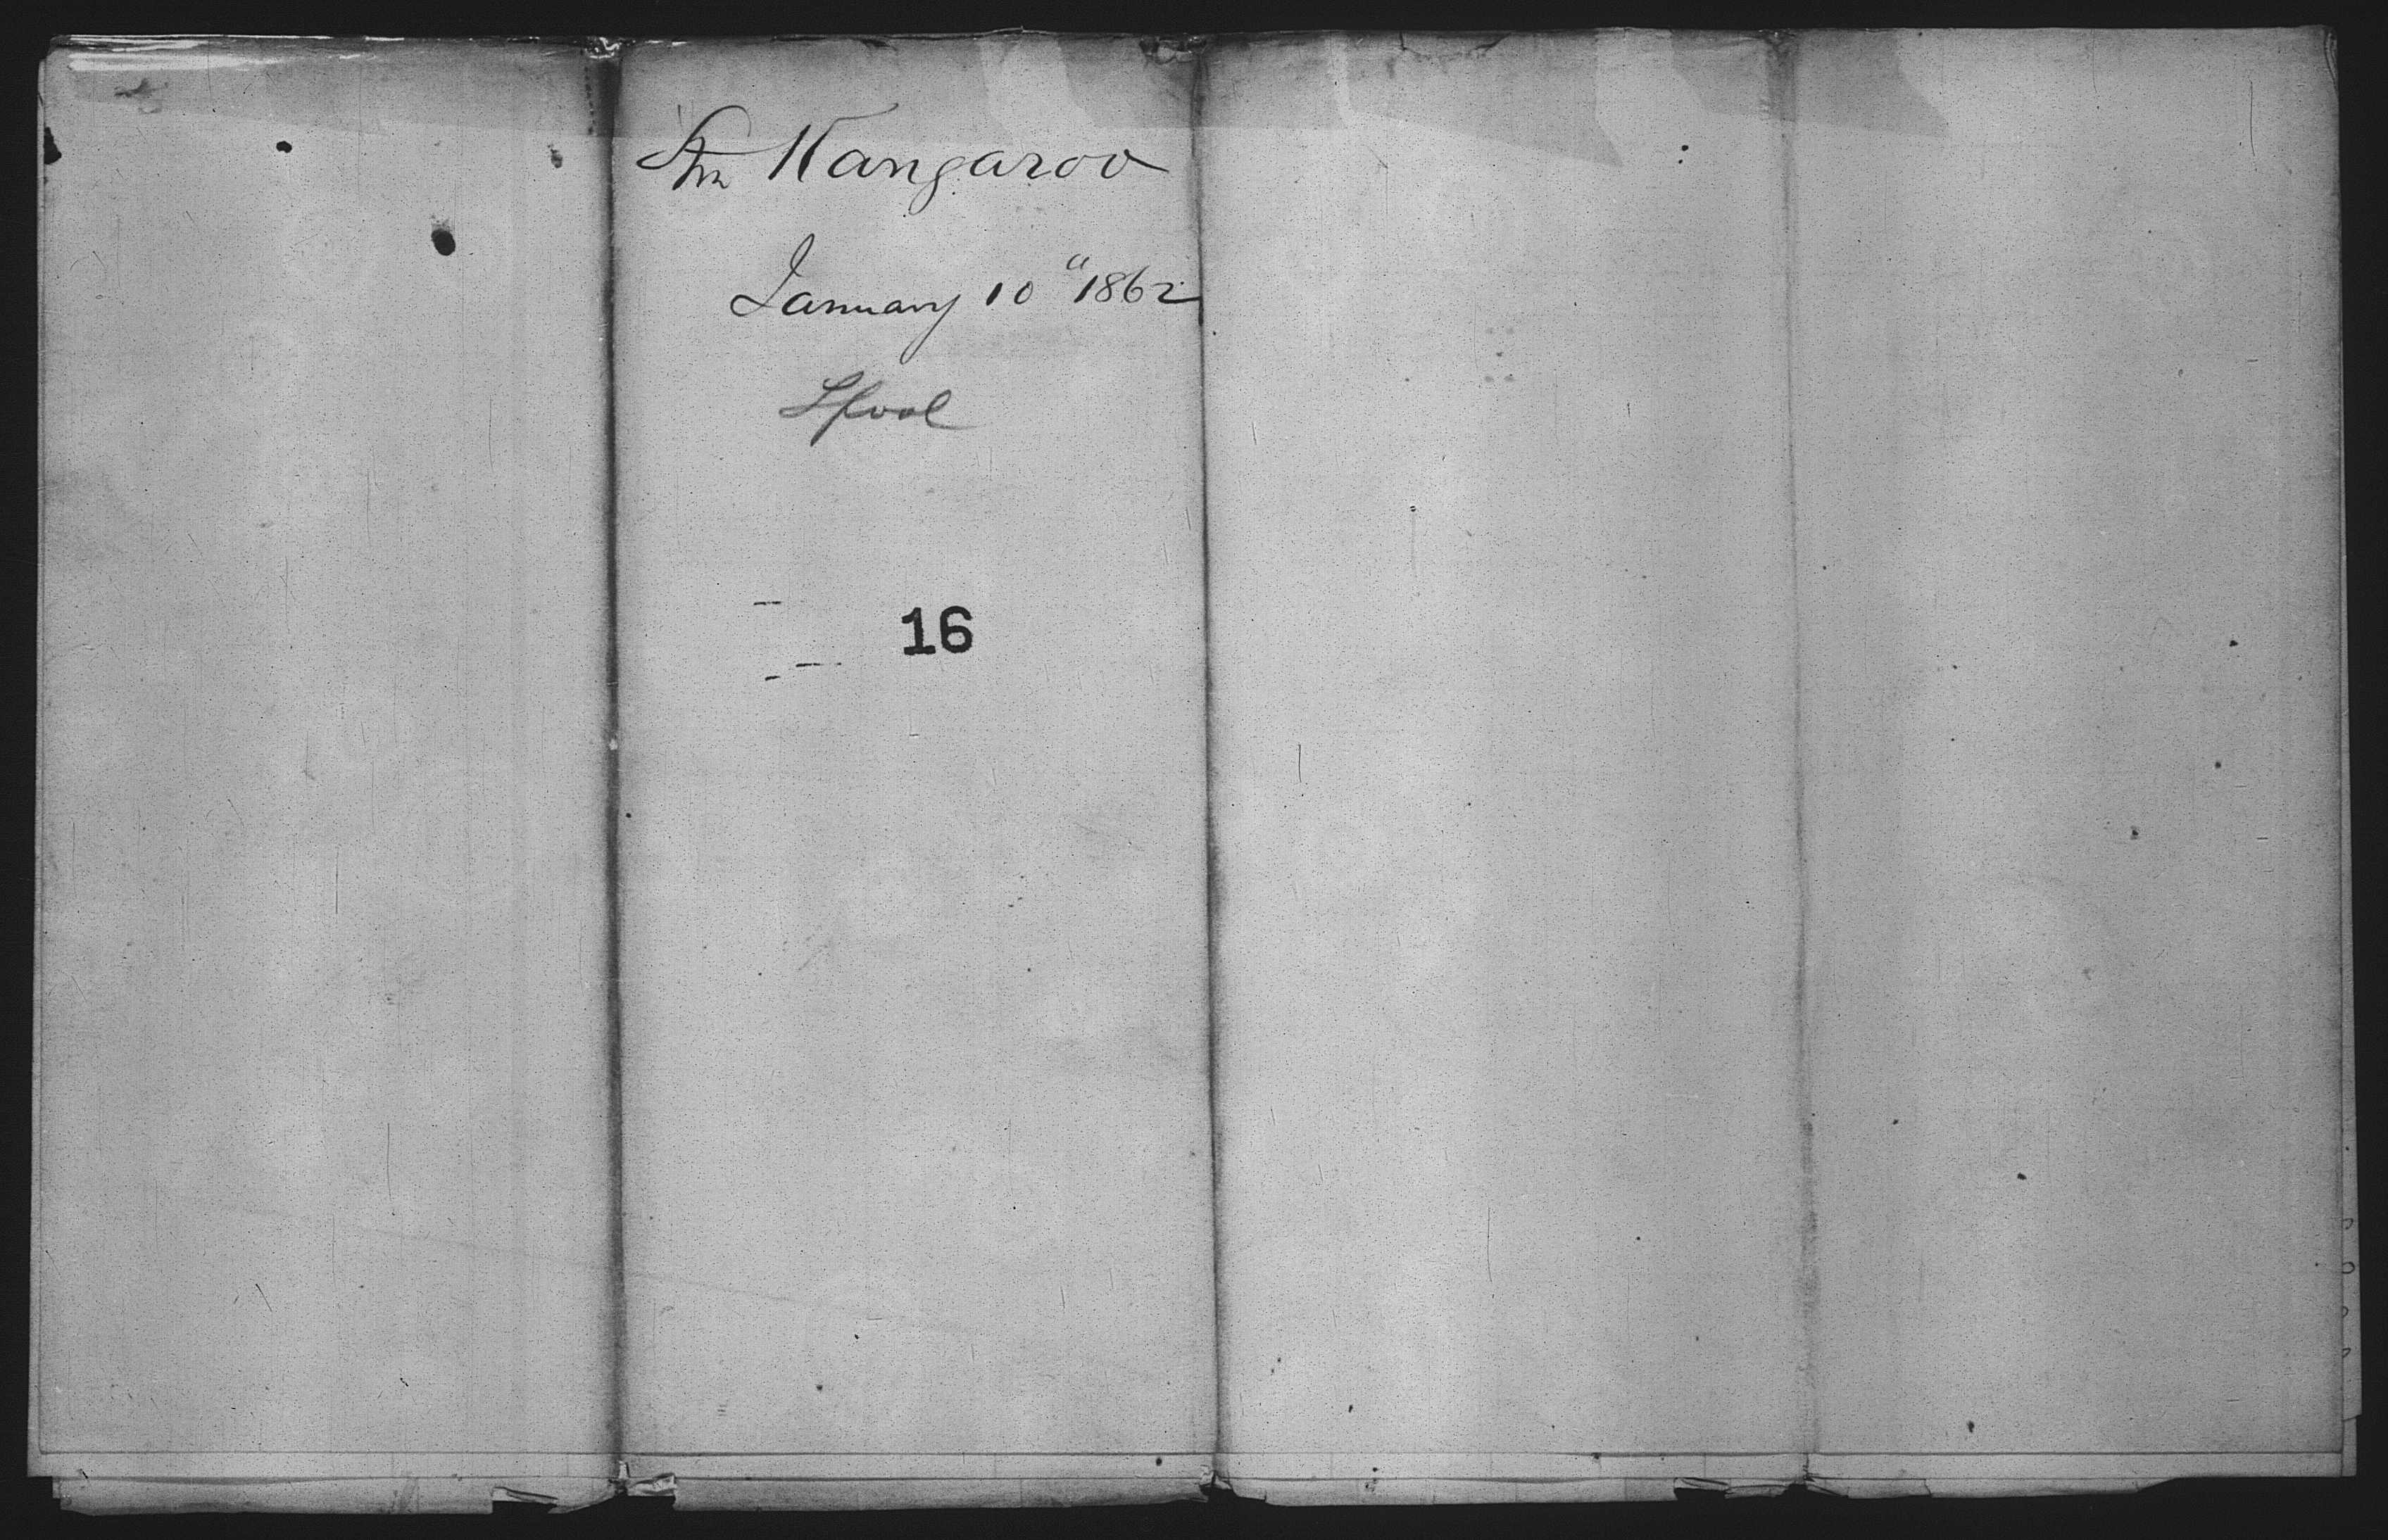 Str Kangaroo
January 10" 1862
Lpool
16